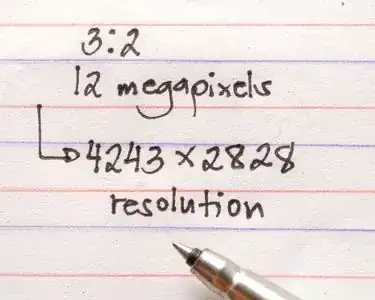 3:2
12 megapixels
4243 x 2828
resolution